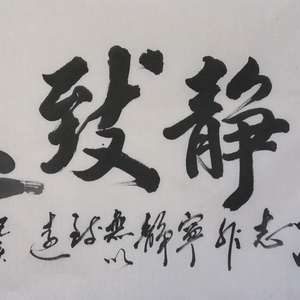 静致
志非寧静無以致遠